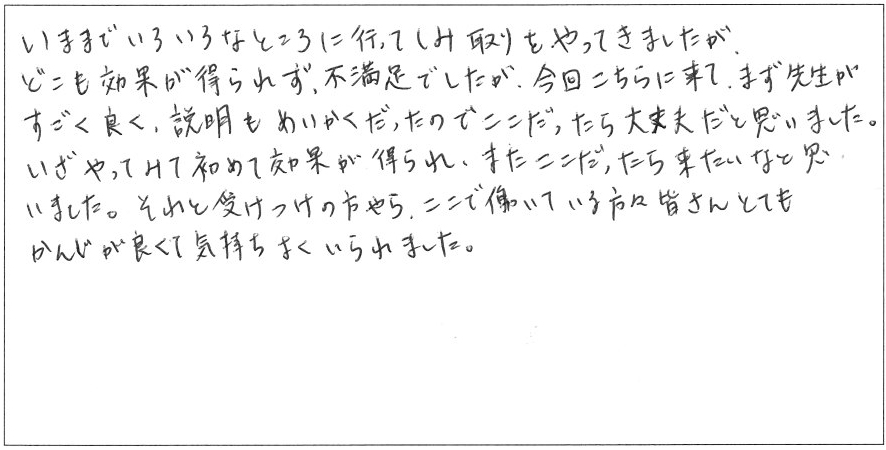 いままでいろいろなところに行ってしみ取りをやってきましたが、
どこも効果が得られず、不満足でしたが、今回こちらに来て、まず先生が
すごく良く、説明もめいかくだったのでここだったら大丈夫だと思いました。
いざやってみて初めて効果が得られ、またここだったら来たいなと思
いました。それと受けつけの方やら、ここで働いている方々皆さんとても
かんじが良くて気持ちよくいられました。